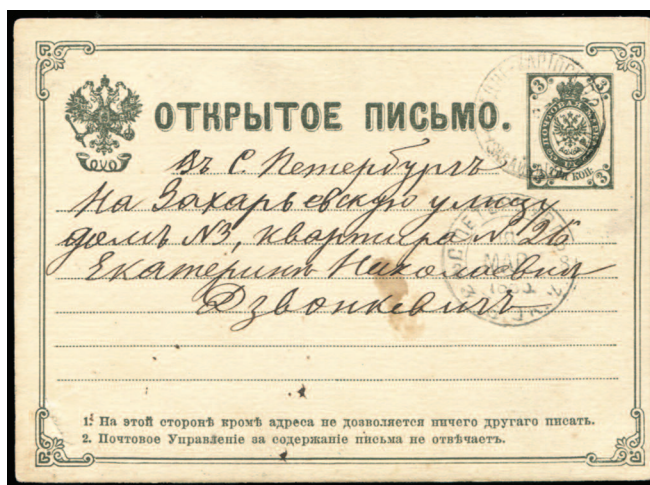 ОТКРЫТОЕ ПИСЬМО.
3 3
3 3
Въ С. Петербургъ
На Захарьевскую улицу
домъ №3, квартира № 26
Екатеринѣ Николаевнѣ
Дзвонкевичъ
1. На этой сторонѣ кромѣ адреса не дозволяется ничего другаго писать.
2. Почтовое Управленіе за содержаніе письма не отвѣчаетъ.